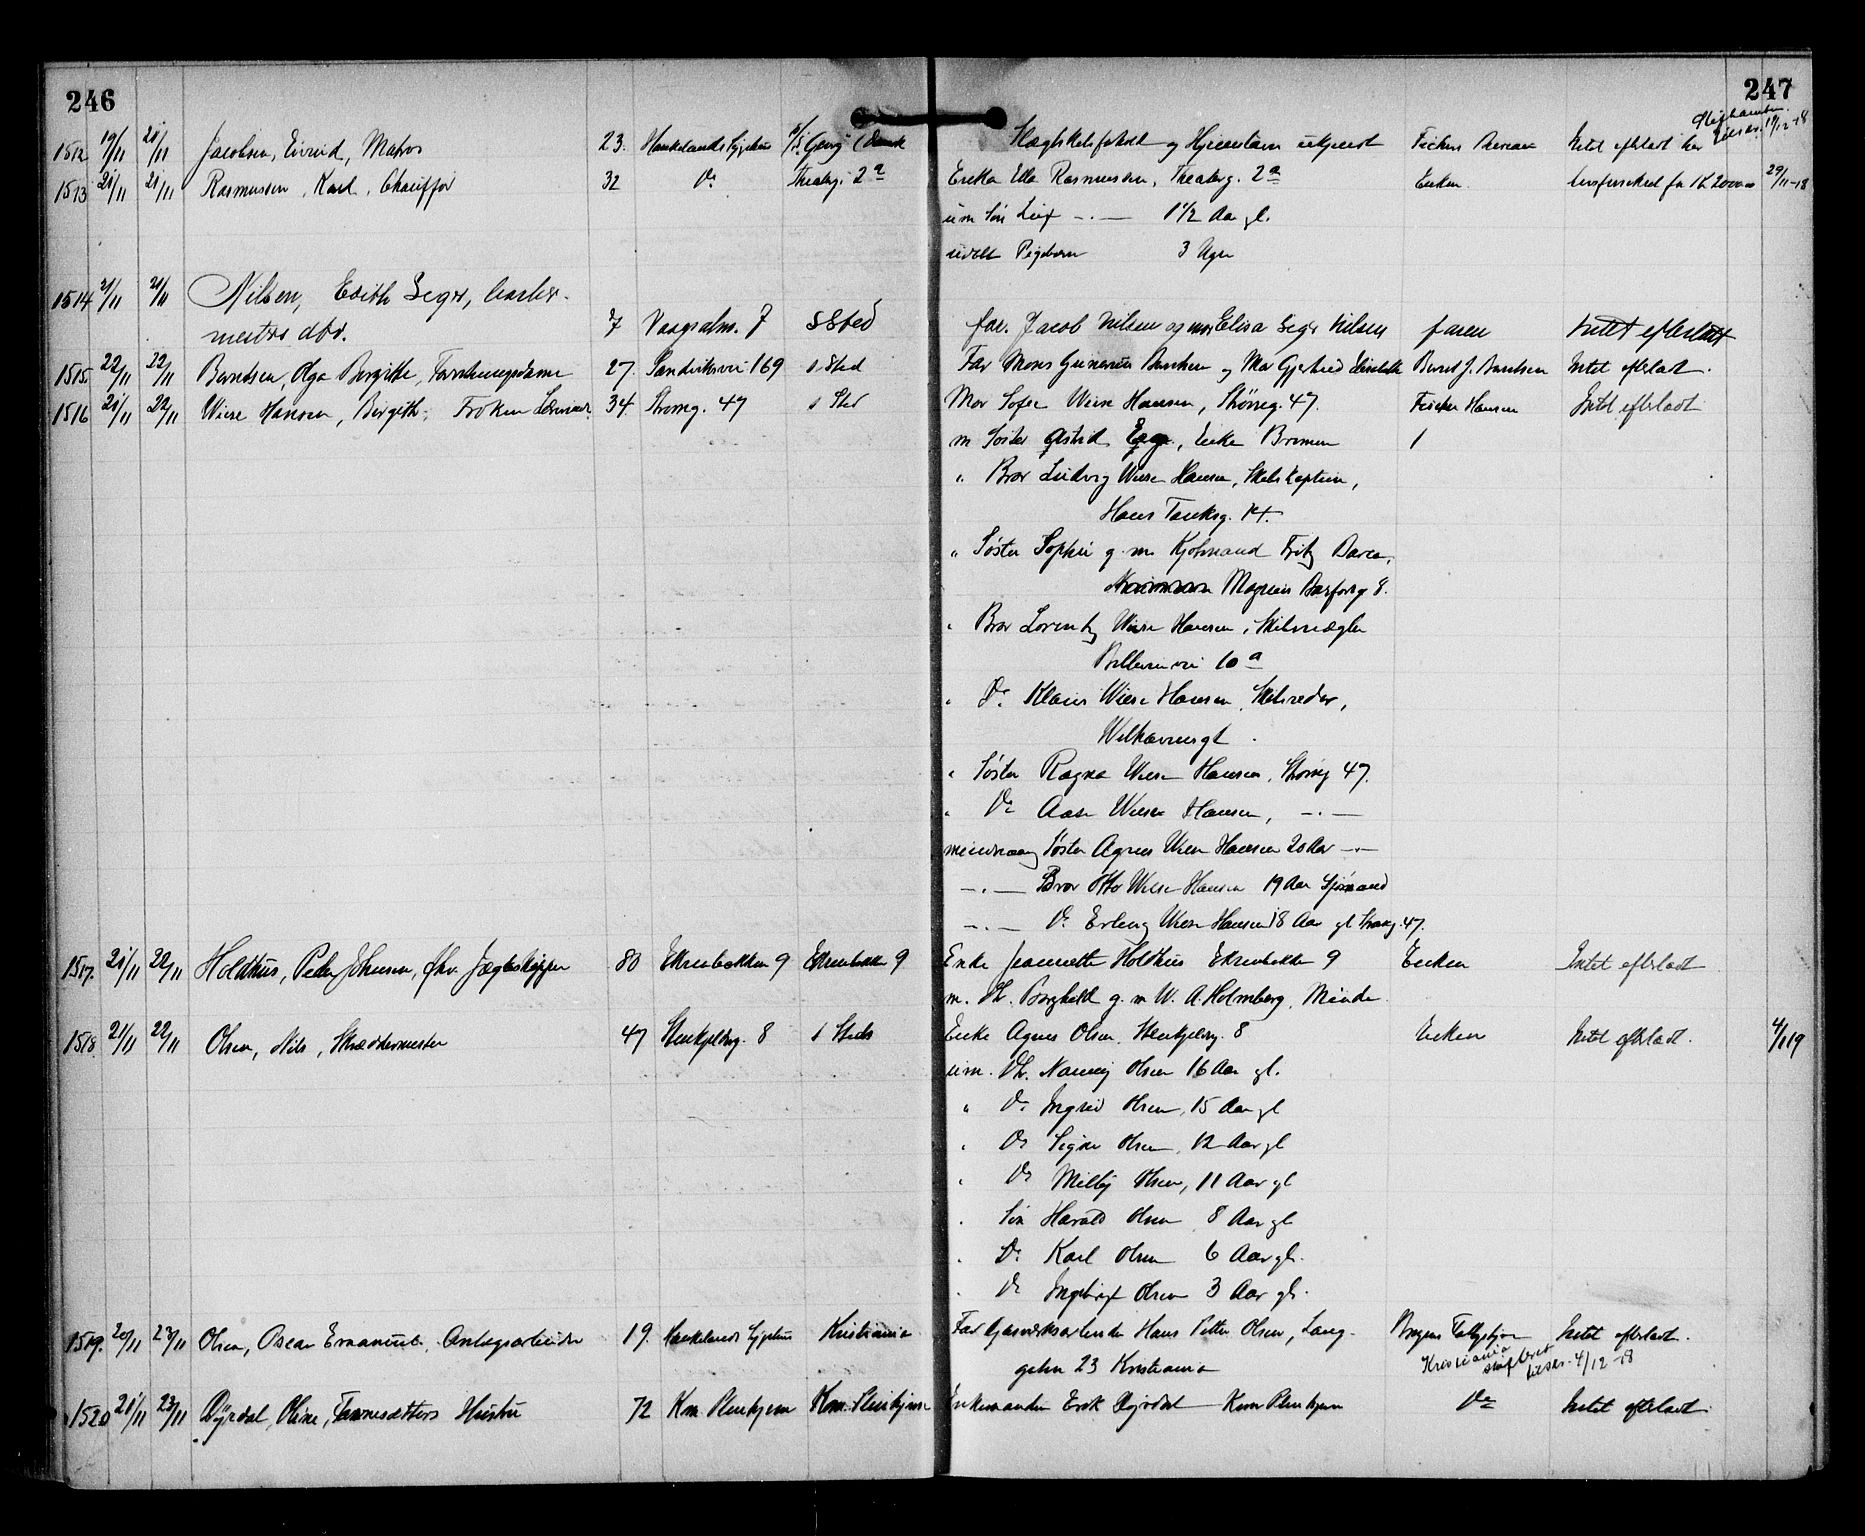 246
247
1512 19/11 21/11 Jacobsen, Eivind, Matros 23. Haukelands Sygehus S/S Georg (Dansk Slægtskabsforhold og Hjemstavn ukjendt Intet efterladt her 19/12-18
1513 21/11 21/11 Rasmussen, Karl, Chauffør 32 Do Theaterg. 2a Enke Ella Rasmussen, Theaterg. 2a Enken. Livsforsikret for Kr 2000 29/11-18
um Søn Leif — . — 1 1/2 Aar gl.
udøbt Pigebarn 3 Uger
1514 21/11 21/11 Nilsen, Edith Seger,
mesters dtr. 7 Vaagsalm. 7 s Sted far. Jacob Nilsen og mor Elisa Seger Nilsen faren Intet efterladt
1515 22/11 22/11 Berntsen, Olga Bergitte, Forretningsdame 27. Sandviksvei 169 s Sted Far Mons Berntsen og Mor Gjertrud Bernt J. Berntsen Intet efterladt.
1516 21/11 22/11 Wiese Hansen, Bergith, Frøken Lærerinde 34 Strømg. 47 s Sted Mor Sofie Wiese Hansen, Strømg. 47. Frøken Hansen Intet efterladt
m Søster Astrid, Enke Bremen
" Bror Ludvig Wiese Hansen, Skibskaptein,
Hans Tanksg. 14.
" Søster Sophie g. m. Kjøbmand Fritz
Magnus Barfotsg 8.
" Bror Lorentz Wiese Hansen, Skibsmægler
vei 10a
" Do Klaus Wiese Hansen, Skibsreder,
Welhavensgt.
" Søster Ragna Wiese Hansen, Strømg 47.
" Do Aase Wiese Hansen, — . —
mindreaarig Søster Agnes Wiese Hansen 20 Aar — . —
— . — Bror Otto Wiese Hansen 19 Aar Sjømand
— . — Do Erling Wiese Hansen 18 Aar gl Strømg. 47.
1517. 21/11 22/11 Holdhus, Peder Johnsen, fhv. Jægteskipper 80 Ekrenbakken 9 Ekrenbakken 9 Enke Jeannette Holdhus Ekrenbakken 9 Enken Intet efterladt
m. Dt. Borghild g. m W. A. Holmberg, Minde
1518 21/11 22/11 Olsen, Nils, Skræddermester 47 Stenkjelderg. 8 s Steds Enke Agnes Olsen, Stenkjelderg. 8 Enken Intet efterladt. 4/1 19
um. Dt. Nanny Olsen 16 Aar gl.
" Do Ingrid Olsen, 15 Aar gl
" Do Signe Olsen, 12 Aar gl
" Do Milly Olsen, 11 Aar gl
" Søn Harald Olsen 8 Aar gl
" Do Karl Olsen 6 Aar gl.
" Do Ingebrigt Olsen 3 Aar gl.
1519. 20/11 23/11 Olsen, Oscar Emanuel, Anlægsarbeider 19. Haukelands Sygehus Kristiania Far Gasværksarbeider Hans Petter Olsen, Lang- Intet efterladt.
gaten 23 Kristiania Kristiania skifteret tilskr. 4/12-18
1520 21/11 23/11 Dyrdal, Oline, Husmoder 72 Kom. Pleiehjem Kom. Pleiehjem Enkemanden Erik Dyrdal Kom Pleiehjem Do Intet efterladt.